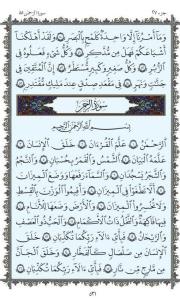 جزء ٢٧ سورة الرحمن ٥٥
وَمَآ أَمْرُنَآ إِلَّا وَٰحِدَةٌ كَلَمْحٍۭ بِٱلْبَصَرِ ۝ وَلَقَدْ أَهْلَكْنَآ
أَشْيَاعَكُمْ فَهَلْ مِن مُّدَّكِرٍ ۝ وَكُلُّ شَىْءٍ فَعَلُوهُ فِى
ٱلزُّبُرِ ۝ وَكُلُّ صَغِيرٍ وَكَبِيرٍ مُّسْتَطَرٌ ۝ إِنَّ ٱلْمُتَّقِينَ فِى
جَنَّٰتٍ وَنَهَرٍ ۝ فِى مَقْعَدِ صِدْقٍ عِندَ مَلِيكٍ مُّقْتَدِرٍۭ ۝
سُورَةُ الرَّحْمَٰن
بِسْمِ ٱللَّهِ ٱلرَّحْمَٰنِ ٱلرَّحِيمِ
ٱلرَّحْمَٰنُ ۝ عَلَّمَ ٱلْقُرْءَانَ ۝ خَلَقَ ٱلْإِنسَٰنَ ۝
عَلَّمَهُ ٱلْبَيَانَ ۝ ٱلشَّمْسُ وَٱلْقَمَرُ بِحُسْبَانٍ ۝ وَٱلنَّجْمُ
وَٱلشَّجَرُ يَسْجُدَانِ ۝ وَٱلسَّمَآءَ رَفَعَهَا وَوَضَعَ ٱلْمِيزَانَ ۝
أَلَّا تَطْغَوْا۟ فِى ٱلْمِيزَانِ ۝ وَأَقِيمُوا۟ ٱلْوَزْنَ بِٱلْقِسْطِ
وَلَا تُخْسِرُوا۟ ٱلْمِيزَانَ ۝ وَٱلْأَرْضَ وَضَعَهَا لِلْأَنَامِ ۝
فِيهَا فَٰكِهَةٌ وَٱلنَّخْلُ ذَاتُ ٱلْأَكْمَامِ ۝ وَٱلْحَبُّ ذُو ٱلْعَصْفِ
وَٱلرَّيْحَانُ ۝ فَبِأَىِّ ءَالَآءِ رَبِّكُمَا تُكَذِّبَانِ ۝ خَلَقَ
ٱلْإِنسَٰنَ مِن صَلْصَٰلٍ كَٱلْفَخَّارِ ۝ وَخَلَقَ ٱلْجَآنَّ
مِن مَّارِجٍ مِّن نَّارٍ ۝ فَبِأَىِّ ءَالَآءِ رَبِّكُمَا تُكَذِّبَانِ ۝
٥٣١